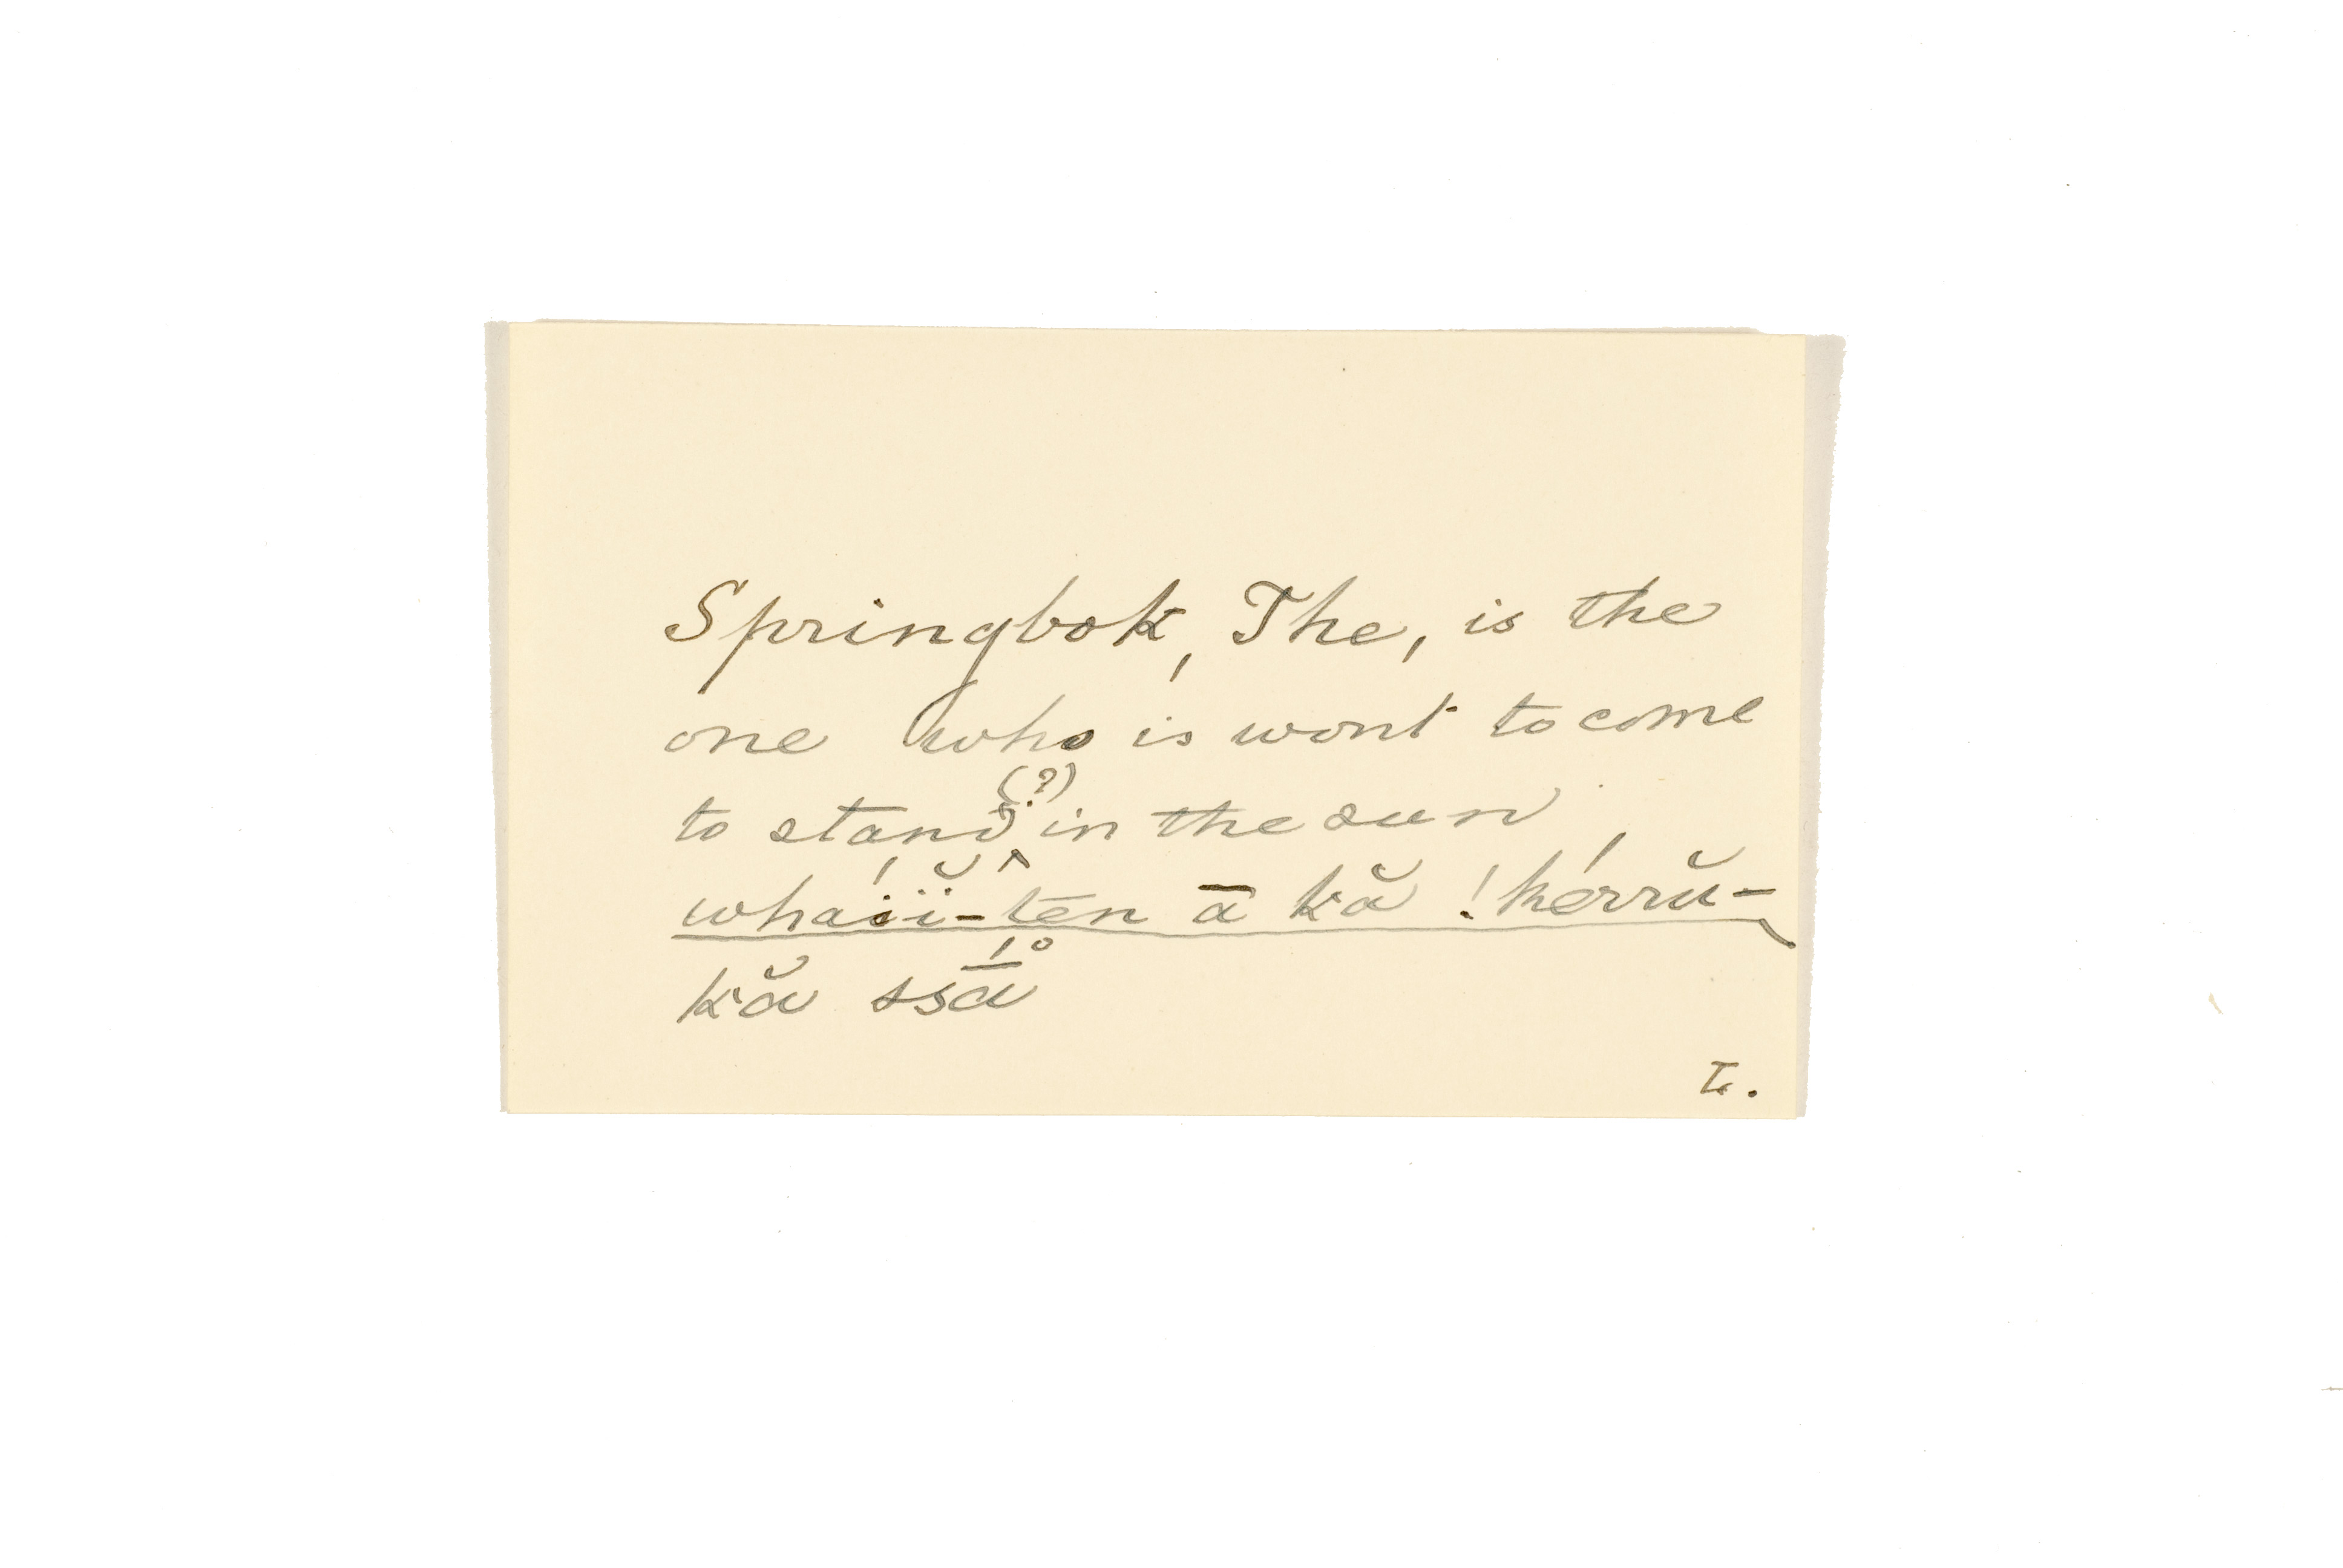 Springbok, The, is the
one who is wont to come
to stand (?) in the sun,
wháĭï-tĕn ā kă !hérrŭ-
kă ssā́°
L.